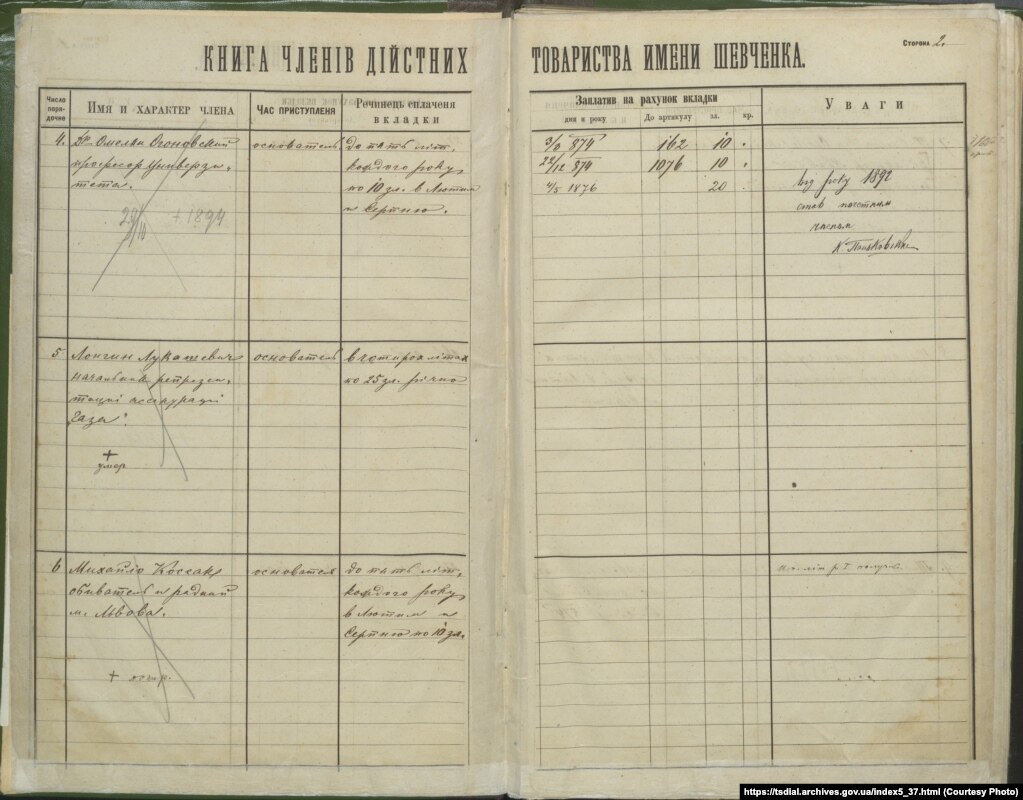 КНИГА ЧЛЕНІВ ДІЙСТНИХ ТОВАРИСТВА ИМЕНИ ШЕВЧЕНКА.
Сторона 2.
Число поря-дочне
Имя и характер члена
Час приступленя
Речинець сплаченя вкладки
Заплатив на рахунок вкладки
дня и року
До артикулу
зл.
кр.
Уваги
4.
Др. Омелян Огоновский
професор Универзи-
тета.
+ 1894
основатель
до пять літ,
каждого року,
по 10 зл. в Лютім
и Серпню.
3/8 874 162 10 .
22/12 874 1076 10 .
4/5 1876 20 .
від року 1892
став почетним
членом
5
Лонгин Лукашевич
начальник репрезен-
тациі ассекурациі
+
умер
основатель
в чотирох літах
по 25 зл. річно
6
Михайло Коссак
обиватель и радний
м. Львова.
основатель
до пять літ,
каждого року,
в Лютім и
Серпню по 10 зл.
https://tsdial.archives.gov.ua/index5_37.html (Courtesy Photo)